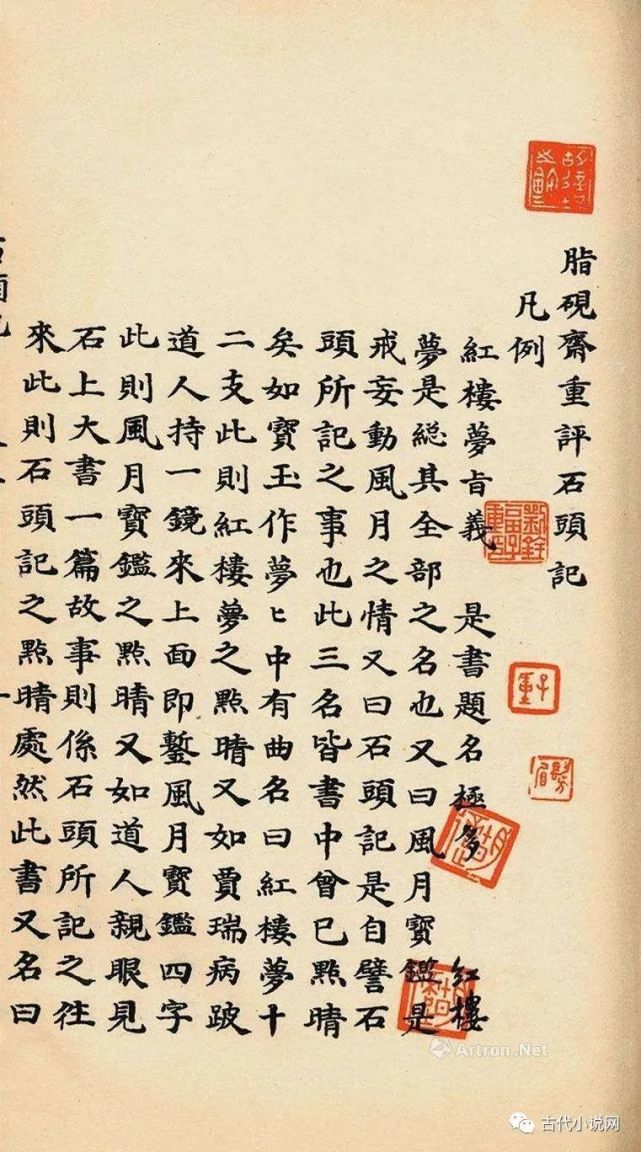 脂硯齋重評石頭記
凡例
紅樓夢旨義　是書題名極多　紅樓
夢是緫其全部之名也又曰風月寳鑑是
戒妄動風月之情又曰石頭記是自譬石
頭所記之事也此三名皆書中曾已㸃晴
矣如寳玉作夢ヒ中有曲名曰紅樓夢十
二支此則紅樓夢之㸃晴又如賈瑞病跛
道人持一鏡來上面即鏨風月寳鑑四字
此則風月寳鑑之㸃晴又如道人親眼見
石上大書一篇故事則係石頭所記之往
來此則石頭記之㸃晴處然此書又名曰
子重
Artron.Net
古代小说网